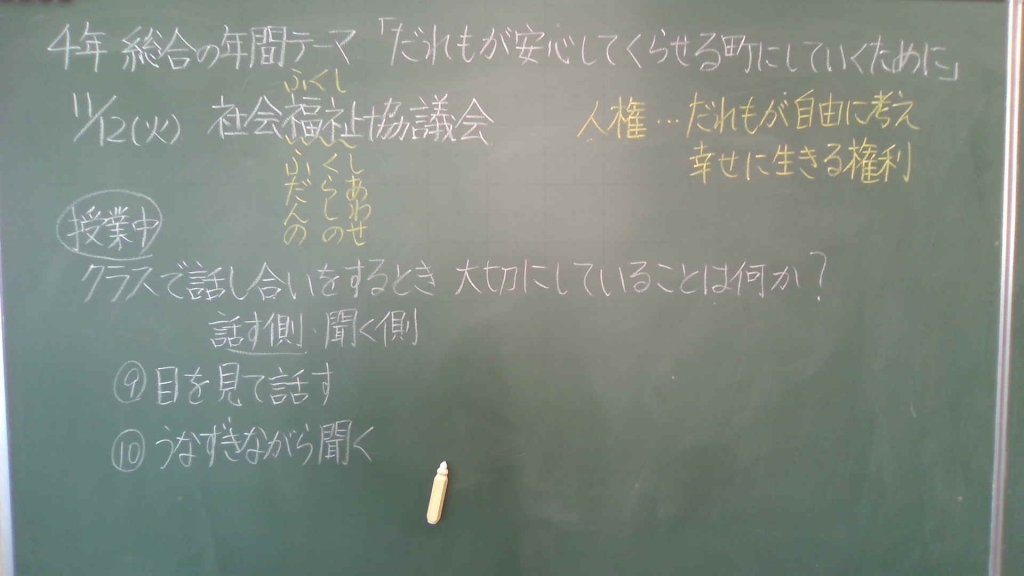 4年 総合の年間テーマ 「だれもが安心してくらせる町にしていくために」
ふくし
11/12(火) 社会福祉協議会
ふだんの
くらしの
しあわせ
人権…だれもが自由に考え
幸せに生きる権利
授業中
クラスで話し合いをするとき 大切にしていることは何か?
話す側・聞く側
⑨目を見て話す
⑩うなずきながら聞く